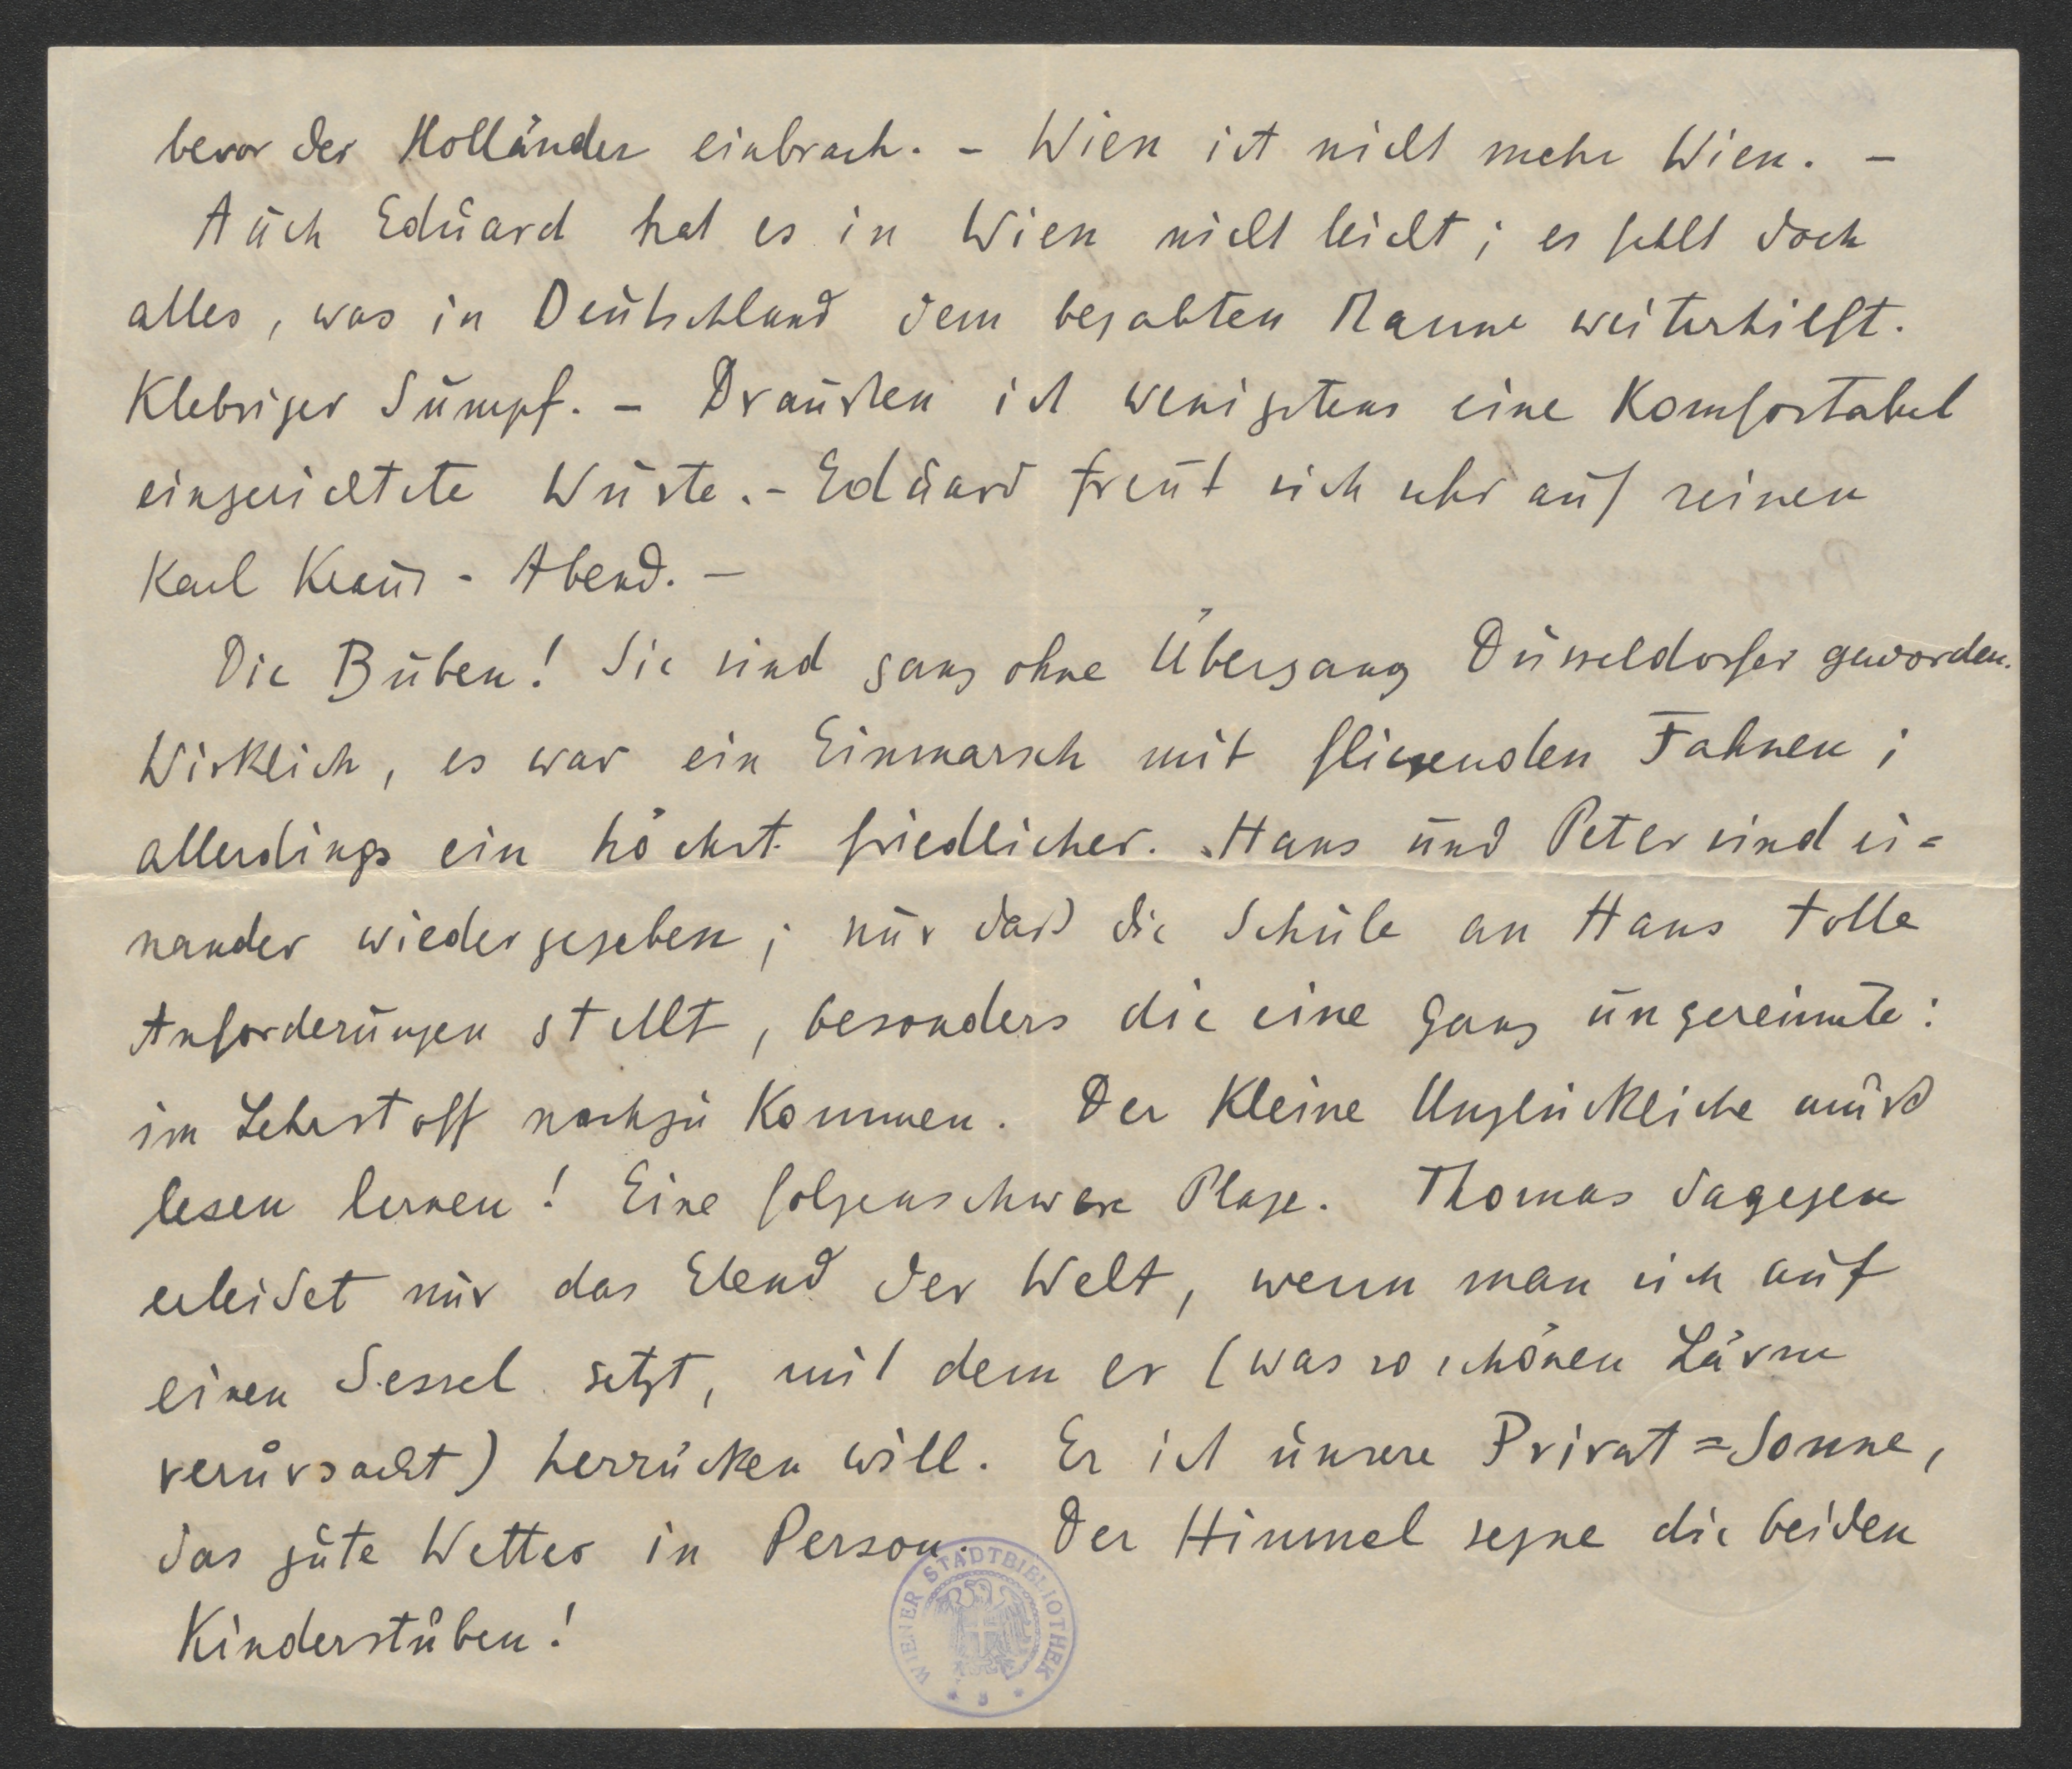 bevor der Holländer einbrach. – Wien ist nicht mehr Wien. –
Auch Eduard hat es in Wien nicht leicht; es fehlt doch
alles, was in Deutschland dem begabten Manne weiterhilft.
Klebriger Sumpf. – Draußen ist wenigstens eine Komfortabel
eingerichtete Wüste. – Eduard freut sich sehr auf seinen
Karl Kraus - Abend. –
Die Buben! Sie sind ganz ohne Übergang Düsseldorfer geworden.
Wirklich, es war ein Einmarsch mit fliegenden Fahnen;
allerdings ein höchst friedlicher. Hans und Peter sind ei=
nander wiedergegeben; nur daß die Schule an Hans tolle
Anforderungen stellt, besonders die eine ganz ungereimte:
im Lehrstoff nachzu Kommen. Der Kleine Unglückliche muß
lesen lernen! Eine folgenschwere Plage. Thomas dagegen
erleidet nur das Elend der Welt, wenn man sich auf
einen Sessel setzt, mit dem er (was so schönen Lärm
verursacht) herrücken will. Er ist unsere Privat=Sonne,
das gute Wetter in Person. Der Himmel segne die beiden
Kinderstuben!
WIENER STADTBIBLIOTHEK